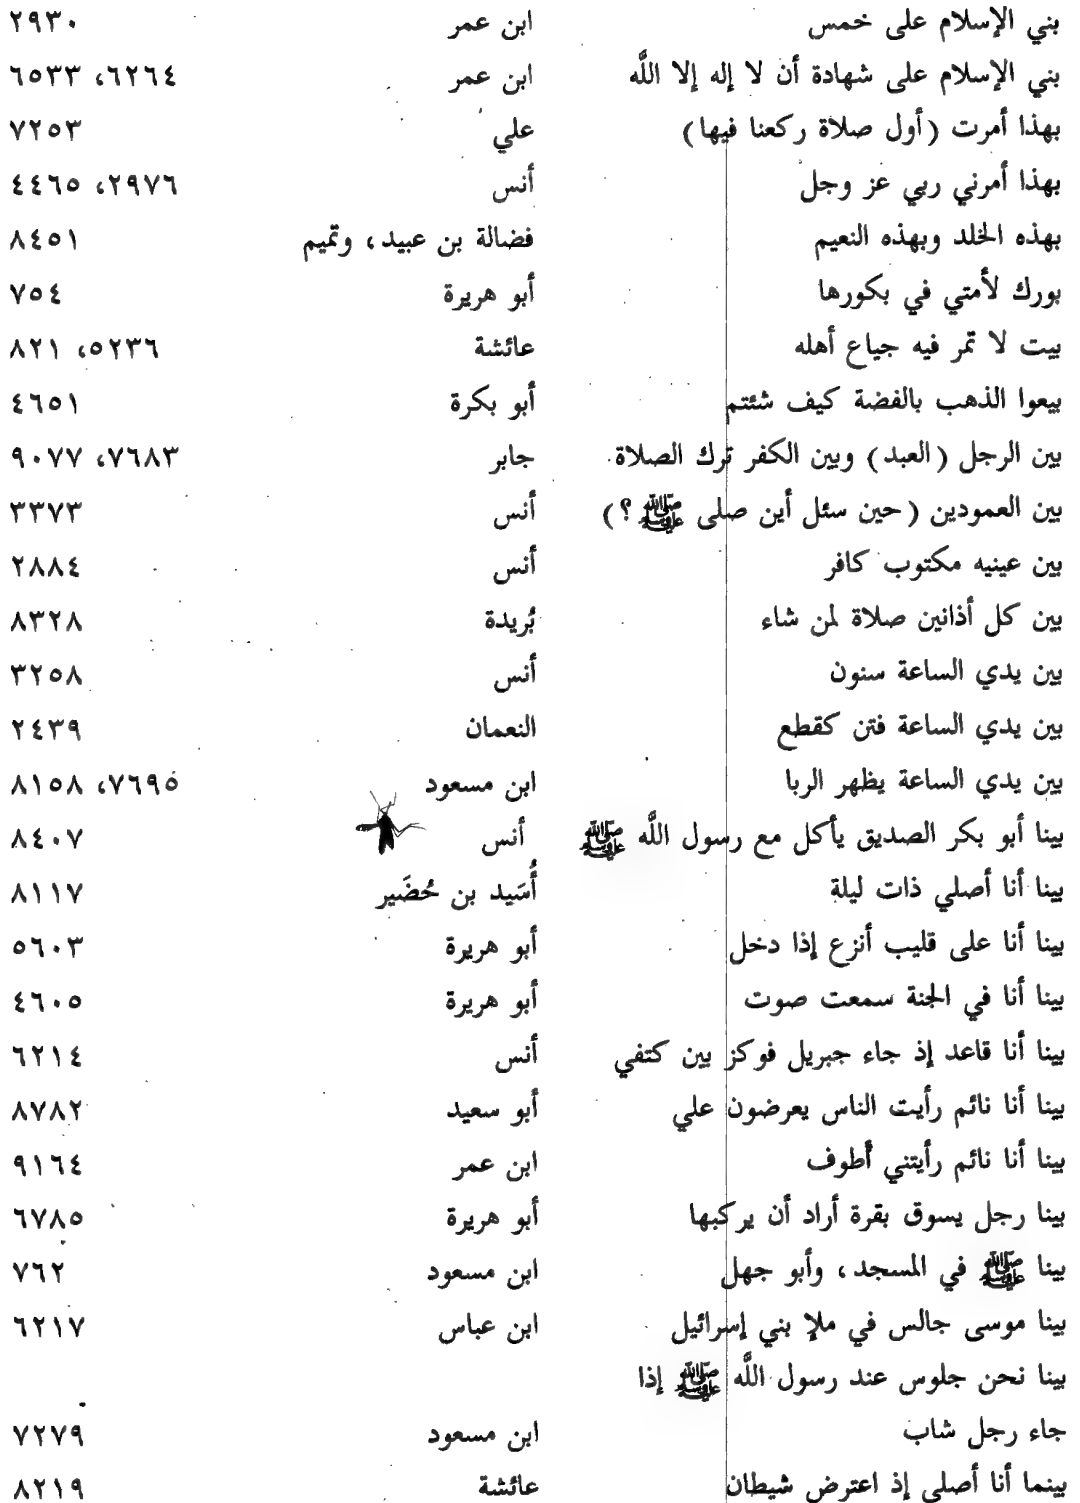 بني الإسلام على خمس ابن عمر ٢٩٣٠
بني الإسلام على شهادة أن لا إله إلا اللَّه ابن عمر ٦٢٦٤، ٦٥٣٣
بهذا أمرت (أول صلاة ركعنا فيها) علي ٧٢٥٣
بهذا أمرني ربي عز وجل أنس ٢٩٧٦، ٤٤٦٥
بهذه الخلد وبهذه النعيم فضالة بن عبيد، وتميم ٨٤٥١
بورك لأمتي في بكورها أبو هريرة ٧٥٤
بيت لا تمر فيه جياع أهله عائشة ٥٢٣٦، ٨٢١
بيعوا الذهب بالفضة كيف شئتم أبو بكرة ٤٦٥١
بين الرجل (العبد) وبين الكفر ترك الصلاة جابر ٧٦٨٣، ٩٠٧٧
بين العمودين (حين سئل أين صلى ﷺ؟) أنس ٣٣٧٣
بين عينيه مكتوب كافر أنس ٢٨٨٤
بين كل أذانين صلاة لمن شاء بُريدة ٨٣٢٨
بين يدي الساعة سنون أنس ٣٢٥٨
بين يدي الساعة فتن كقطع النعمان ٢٤٣٩
بين يدي الساعة يظهر الربا ابن مسعود ٧٦٩٥، ٨١٥٨
بينا أبو بكر الصديق يأكل مع رسول اللَّه ﷺ أنس ٨٤٠٧
بينا أنا أصلي ذات ليلة أُسَيد بن حُضَير ٨١١٧
بينا أنا على قليب أنزع إذا دخل أبو هريرة ٥٦٠٣
بينا أنا في الجنة سمعت صوت أبو هريرة ٤٦٠٥
بينا أنا قاعد إذ جاء جبريل فوكز بين كتفي أنس ٦٢١٤
بينا أنا نائم رأيت الناس يعرضون علي أبو سعيد ٨٧٨٢
بينا أنا نائم رأيتني أطوف ابن عمر ٩١٦٤
بينا رجل يسوق بقرة أراد أن يركبها أبو هريرة ٦٧٨٥
بينا ﷺ في المسجد، وأبو جهل ابن مسعود ٧٦٢
بينا موسى جالس في ملإ بني إسرائيل ابن عباس ٦٢١٧
بينا نحن جلوس عند رسول اللَّه ﷺ إذا
جاء رجل شاب ابن مسعود ٧٢٧٩
بينما أنا أصلي إذ اعترض شيطان عائشة ٨٢١٩